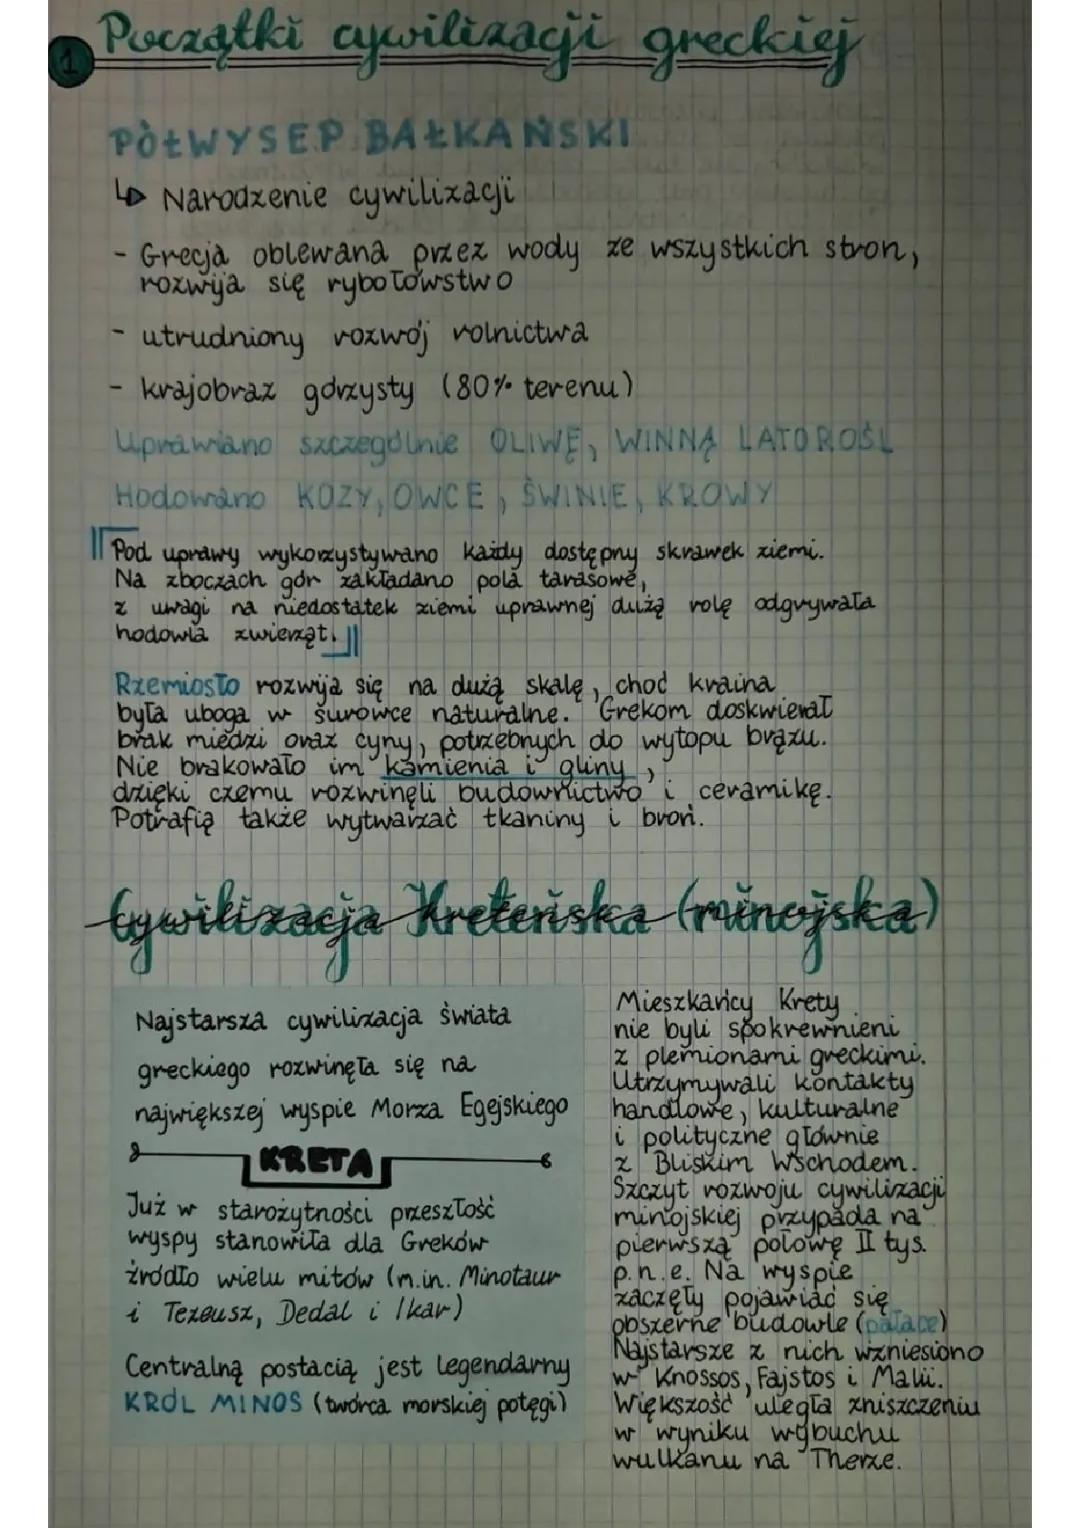 1 Początki cywilizacji greckiej
PÓŁWYSEP BAŁKAŃSKI
↳ Narodzenie cywilizacji
- Grecja oblewana przez wody ze wszystkich stron,
rozwija się rybołowstwo
- utrudniony rozwój rolnictwa
- krajobraz górzysty (80% terenu)
Uprawiano szczególnie OLIWĘ, WINNĄ LATOROŚL
Hodowano KOZY, OWCE, ŚWINIE, KROWY
Pod uprawy wykorzystywano każdy dostępny skrawek ziemi.
Na zboczach gór zakładano pola tarasowe,
z uwagi na niedostatek ziemi uprawnej dużą rolę odgrywała
hodowla zwierząt.
Rzemiosło rozwija się na dużą skalę, choć kraina
była uboga w surowce naturalne. Grekom doskwierał
brak miedzi oraz cyny, potrzebnych do wytopu brązu.
Nie brakowało im kamienia i gliny,
dzięki czemu rozwinęli budownictwo i ceramikę.
Potrafią także wytwarzać tkaniny i broń.
Cywilizacja Kreteńska (minojska)
Najstarsza cywilizacja świata
greckiego rozwinęła się na
największej wyspie Morza Egejskiego
KRETA
Już w starożytności przeszłość
wyspy stanowiła dla Greków
źródło wielu mitów (m.in. Minotaur
i Tezeusz, Dedal i Ikar)
Centralną postacią jest legendarny
KRÓL MINOS (twórca morskiej potęgi)
Mieszkańcy Krety
nie byli spokrewnieni
z plemionami greckimi.
Utrzymywali kontakty
handlowe, kulturalne
i polityczne głównie
z Bliskim Wschodem.
Szczyt rozwoju cywilizacji
minojskiej przypada na
pierwszą połowę II tys.
p.n.e. Na wyspie
zaczęły pojawiać się
obszerne budowle (pałace)
Najstarsze z nich wzniesiono
w Knossos, Fajstos i Malii.
Większość uległa zniszczeniu
w wyniku wybuchu
wulkanu na Therze.